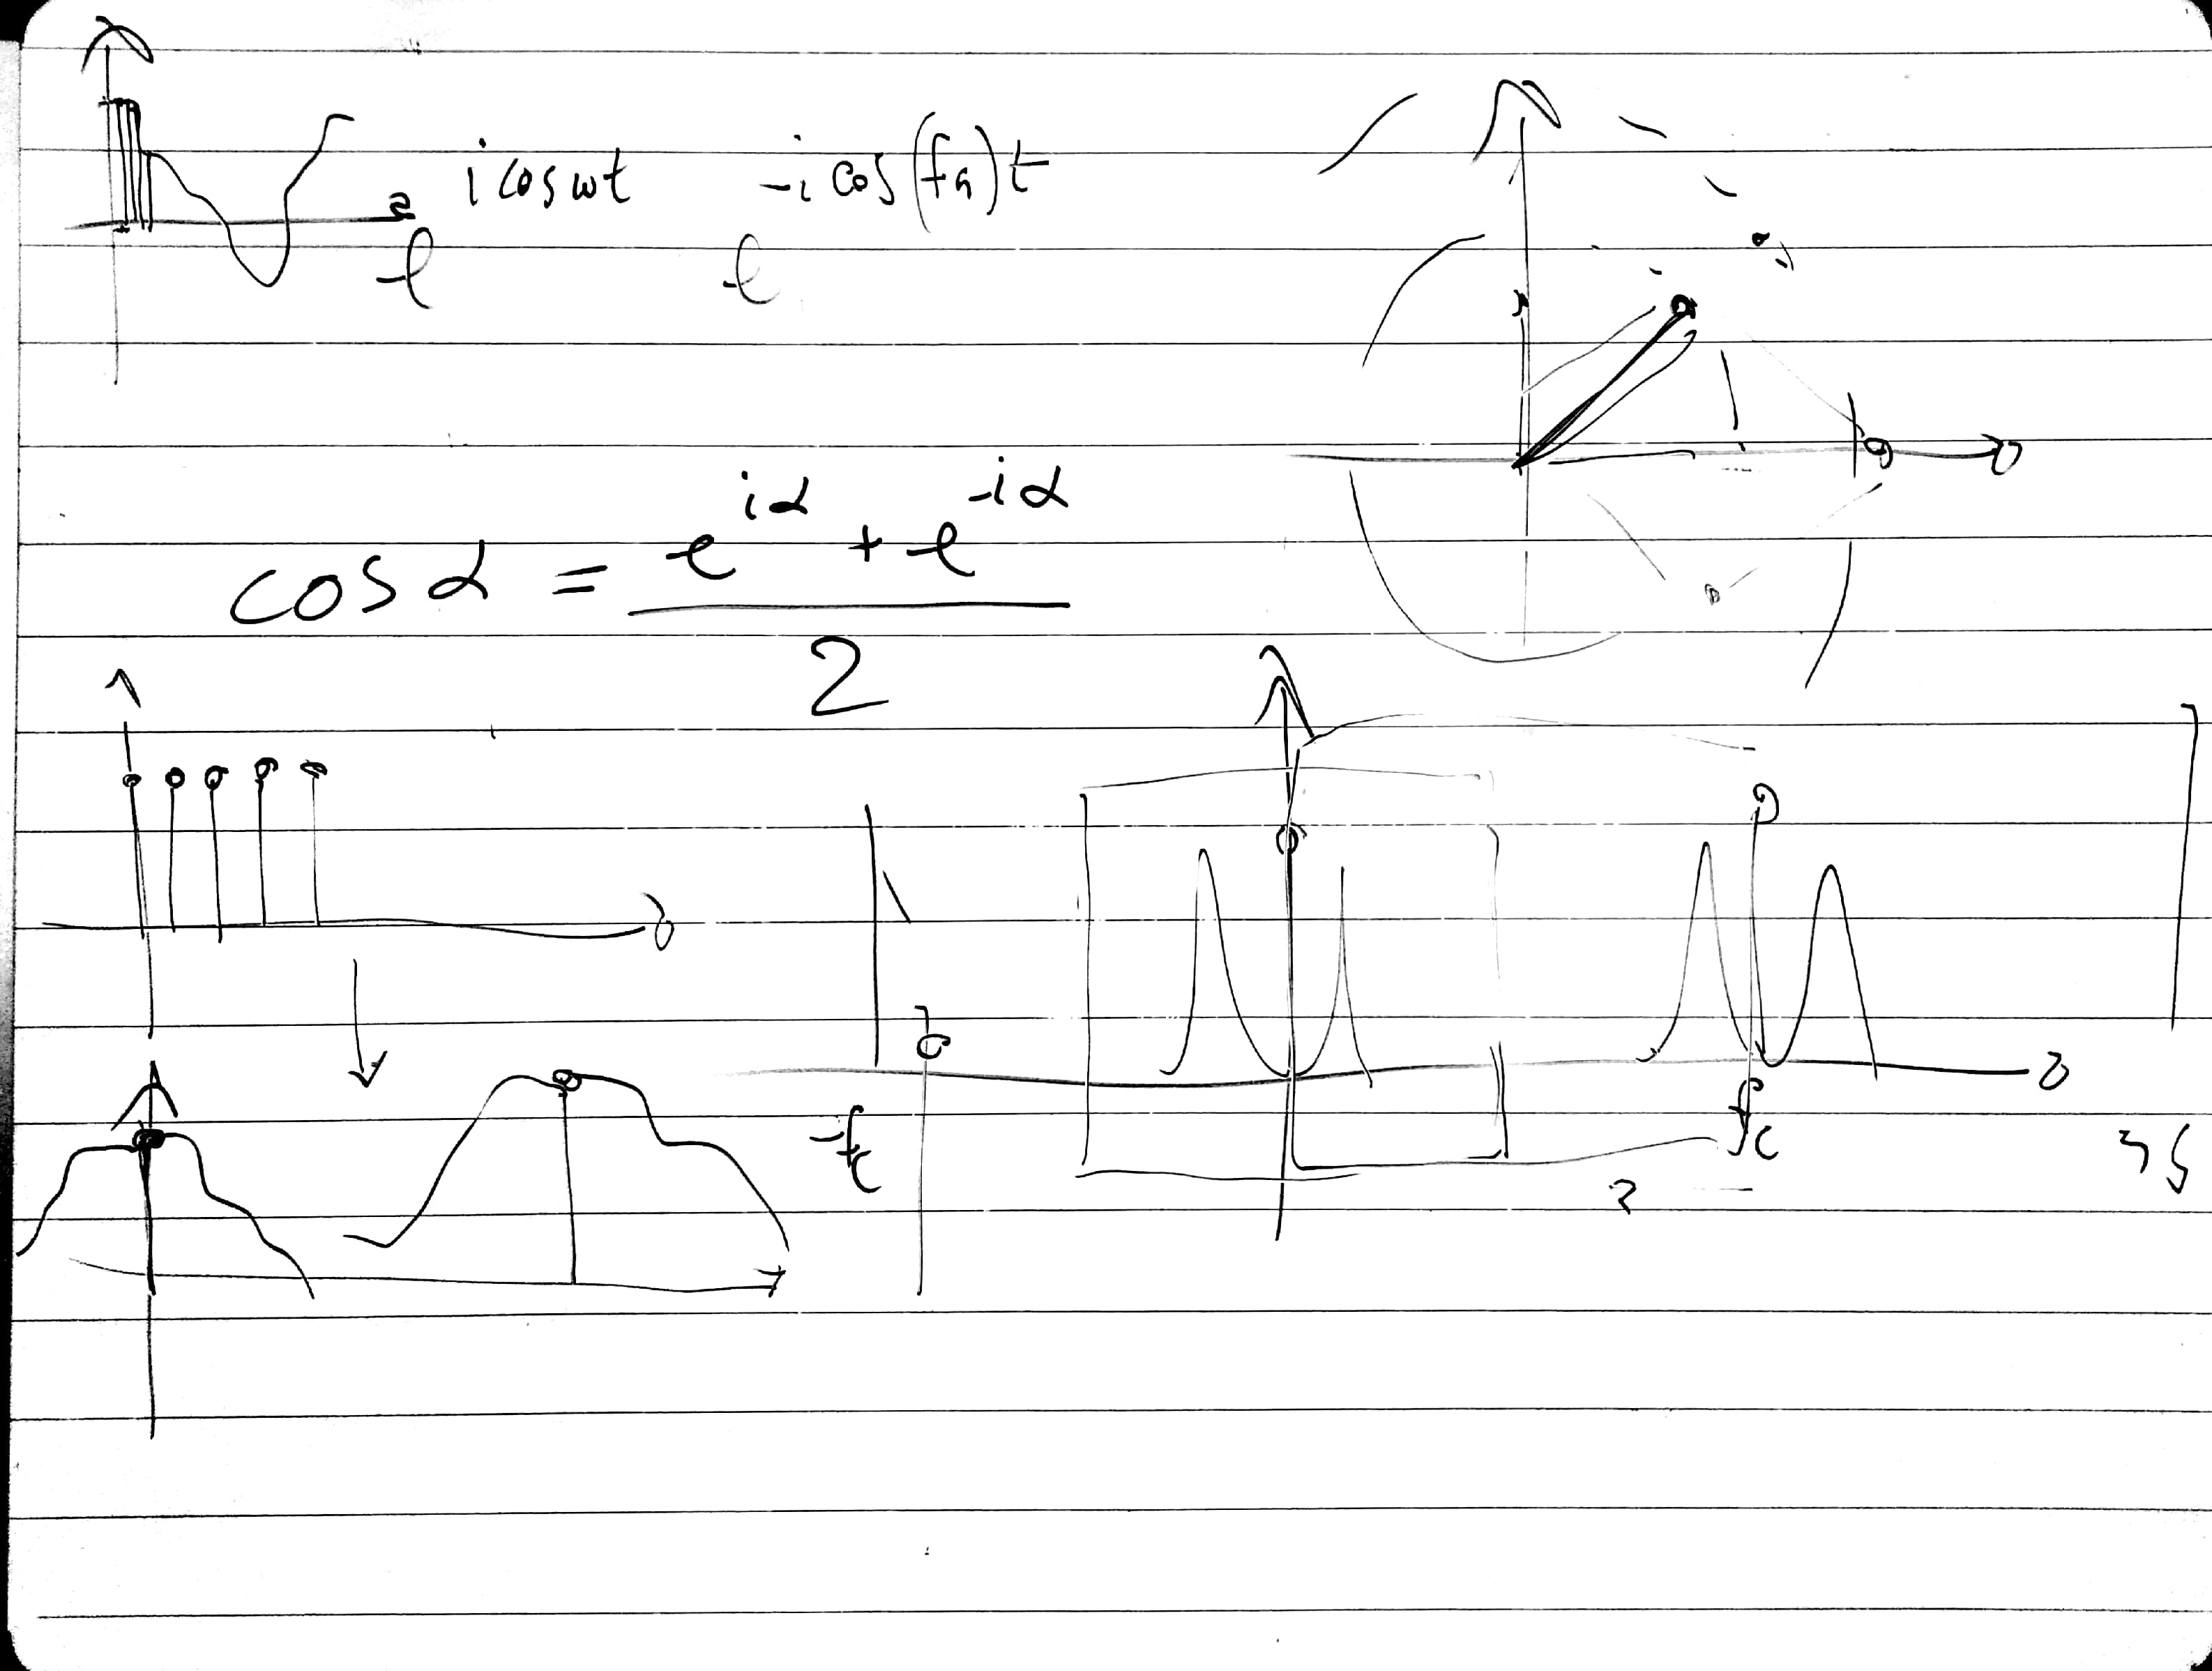 i cos wt -i cos(fn)t
e e
cos α = e^{iα} + e^{-iα}
2
-fc fc